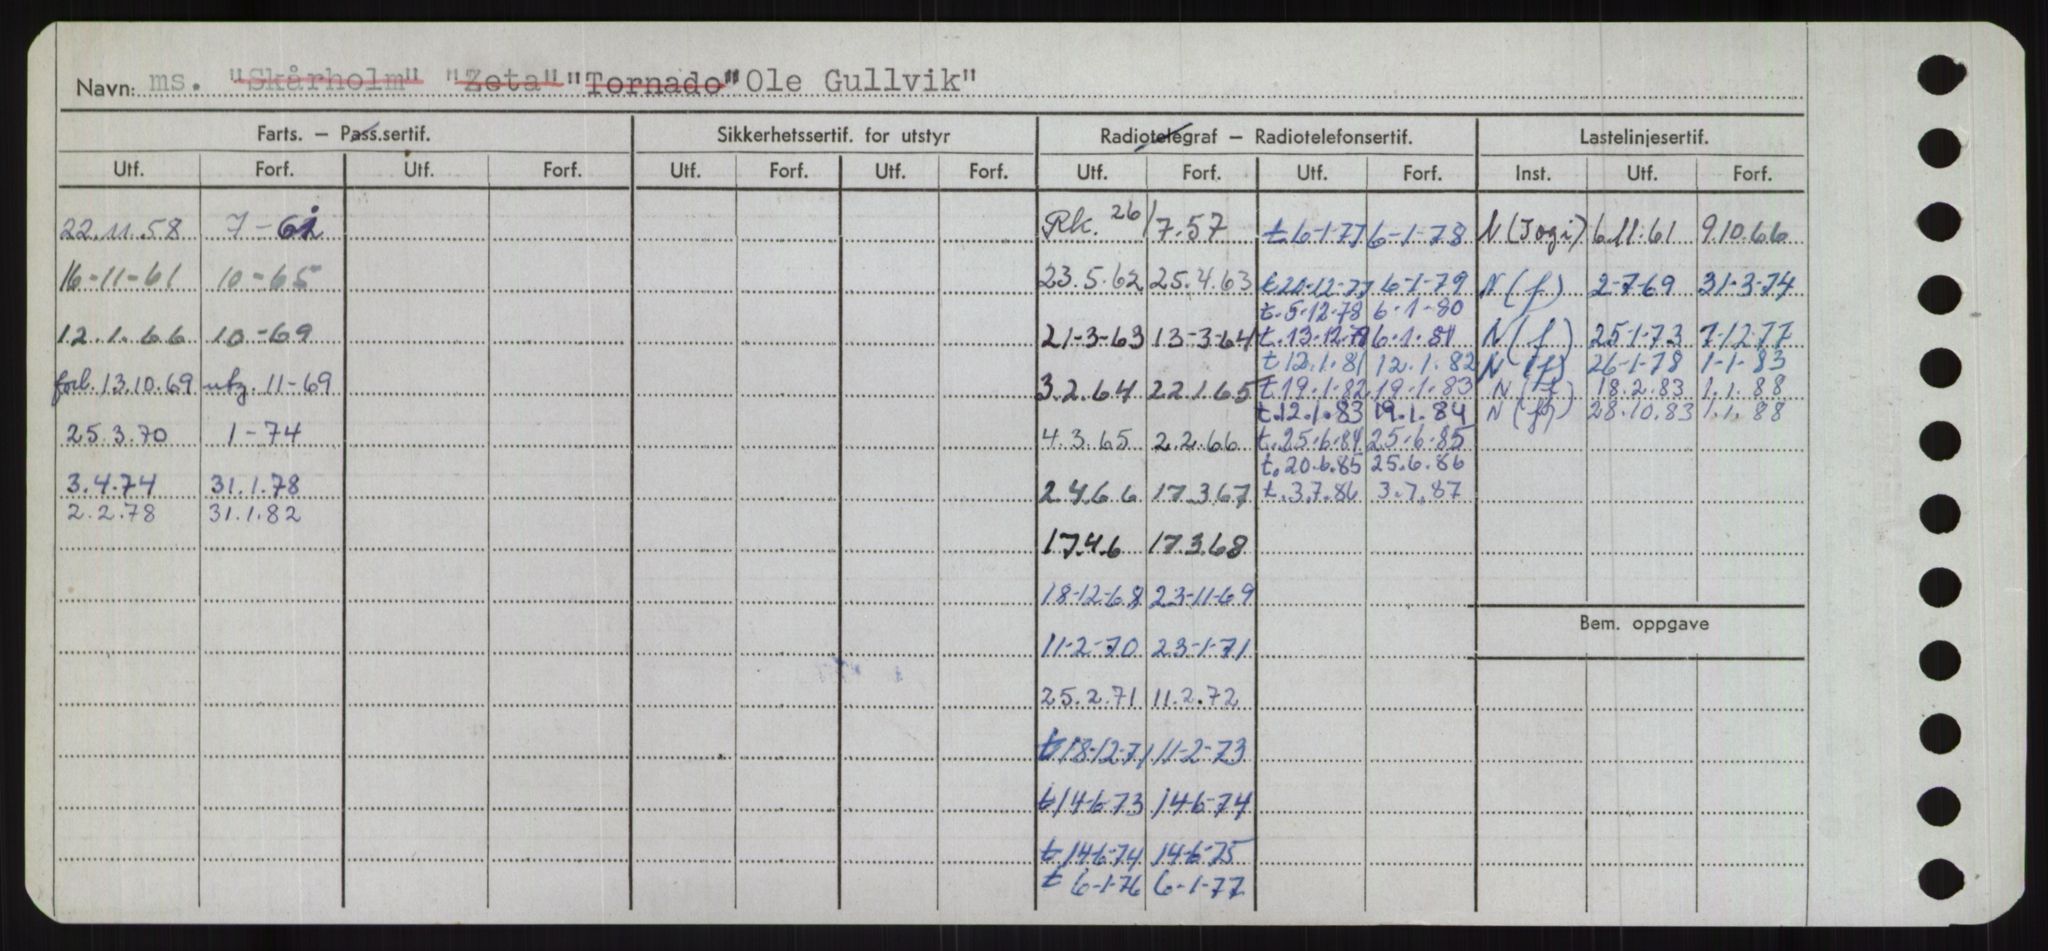 Navn: ms. "Skårholm" "Zeta" "Tornado" "Ole Gullvik"
Farts. — Pass.sertif. Sikkerhetssertif. for utstyr Radiotelegraf — Radiotelefonsertif. Lastelinjesertif.
Utf. Forf. Utf. Forf. Utf. Forf. Utf. Forf. Utf. Forf. Utf. Forf. Inst. Utf. Forf.
22.11.58 7-62 Rk. 26/7.57 t 6-1-77 6-1-78 N (Jogi) 6.11.61 9.10.66
16-11-61 10-65 23.5.62 25.4.63 t 20-12-77 6-1-79 N (f) 2-7-69 31-3-74
t. 5.12.78 6.1-80
12.1.66 10-69 21-3-63 13-3-64 t. 13.12.79 6.1.81 N (f) 25-1-73 7-12-77
t 12.1.81 12.1.82 N (f) 26-1-78 1-1-83
forl. 13.10.69 utg. 11-69 3.2.64 22.1.65 t 19.1.82 19.1.83 N (f) 18.2.83 1.1.88
t. 12.1.83 19.1.84 N (f) 28.10.83 1.1.88
25.3.70 1-74 4.3.65 2.2.66 t. 25.6.84 25.6.85
t. 20.6.85 25.6.86
3.4.74 31.1.78 2.4.66 17.3.67 t. 3.7.86 3.7.87
2.2.78 31.1.82
17.4.6 17.3.68
18-12-68 23-11-69
Bem. oppgave
11-2-70 23-1-71
25.2.71 11.2.72
t 18-12-71 11-2-73
t 14-6-73 14-6-74
t 14-6-74 14-6-75
t 6-1-76 6-1-77